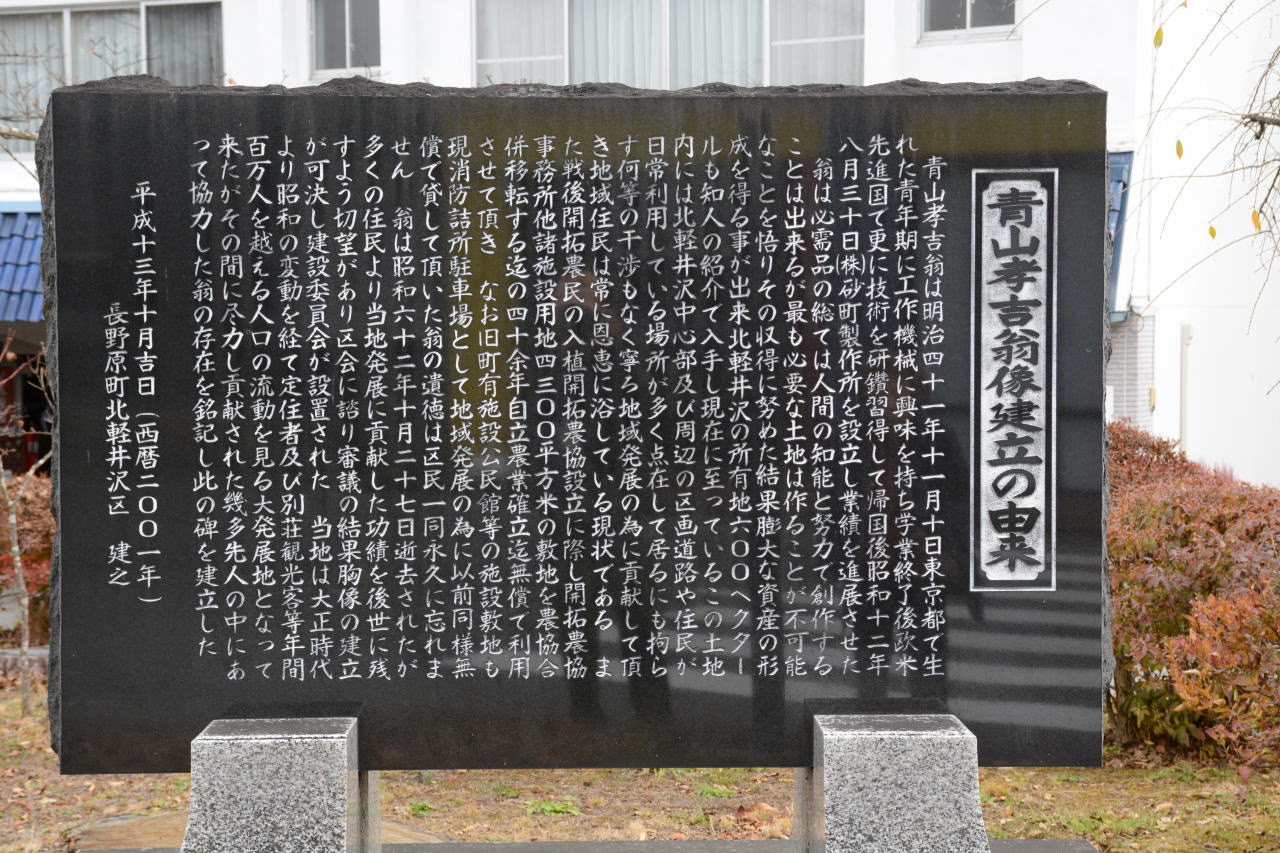 青山孝吉翁像建立の由来
青山孝吉翁は明治四十一年十一月十日東京都で生
れた青年期に工作機械に興味を持ち学業終了後欧米
先進国で更に技術を研鑽習得して帰国後昭和十二年
八月三十日(株)砂町製作所を設立し業績を進展させた
翁は必需品の総ては人間の知能と努力で創作する
ことは出来るが最も必要な土地は作ることが不可能
なことを悟りその収得に努めた結果膨大な資産の形
成を得る事が出来北軽井沢の所有地六〇〇ヘクター
ルも知人の紹介で入手し現在に至っているこの土地
内には北軽井沢中心部及び周辺の区画道路や住民が
日常利用している場所が多く点在して居るにも拘ら
ず何等の干渉もなく寧ろ地域発展の為に貢献して頂
き地域住民は常に恩恵に浴している現状である ま
た戦後開拓農民の入植開拓農協設立に際し開拓農協
事務所他諸施設用地四三〇〇平方米の敷地を農協合
併移転する迄の四十余年自立農業確立迄無償で利用
させて頂き なお旧町有施設公民館等の施設敷地も
現消防詰所駐車場として地域発展の為に以前同様無
償で貸して頂いた翁の遺徳は区民一同永久に忘れま
せん 翁は昭和六十二年十月二十七日逝去されたが
多くの住民より当地発展に貢献した功績を後世に残
すよう切望があり区会に諮り審議の結果胸像の建立
が可決し建設委員会が設置された 当地は大正時代
より昭和の変動を経て定住者及び別荘観光客等年間
百万人を越える人口の流動を見る大発展地となって
来たがその間に尽力し貢献された幾多先人の中にあ
って協力した翁の存在を銘記し此の碑を建立した
平成十三年十月吉日(西暦二〇〇一年)
長野原町北軽井沢区 建之